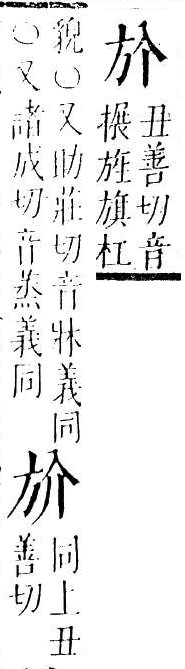 丑善切音
搌旌旗杠
貌〇又助莊切音牀義同
〇又諸成切音烝義同
同上丑
善切